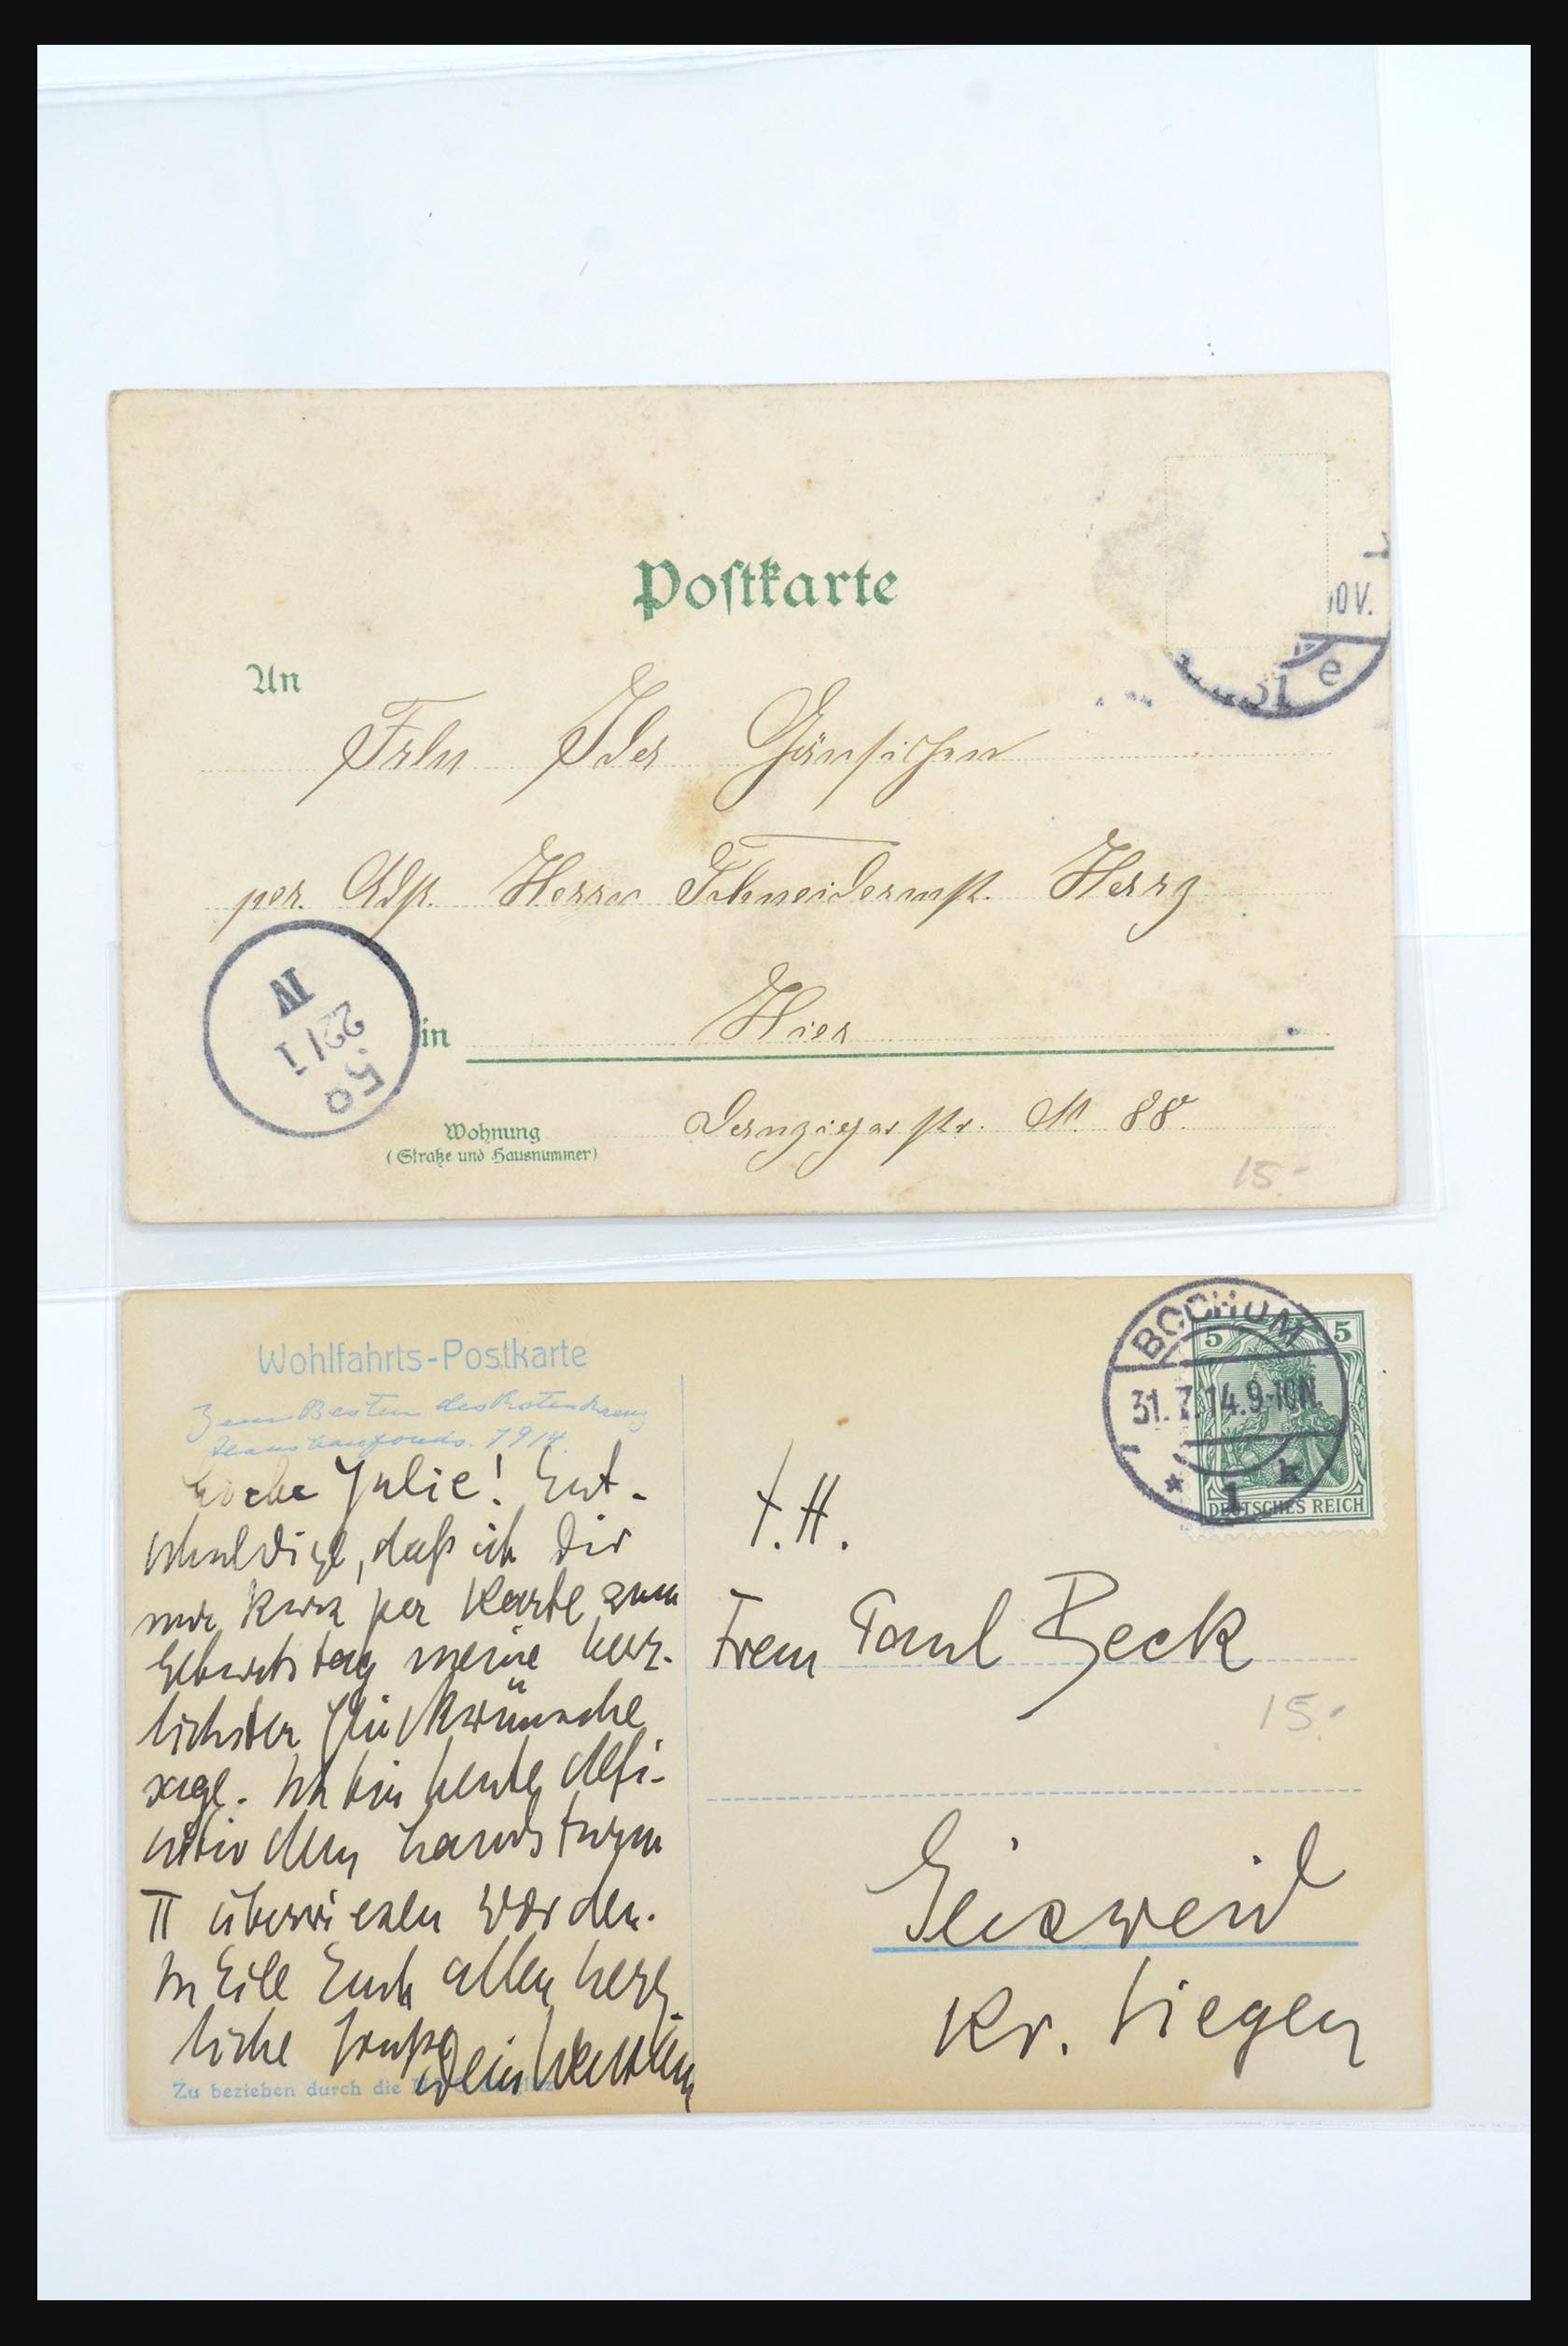 Postkarte
OV.
51 e
An
Frln Ida Gänsichen
per. Adr. Herrn Schneidermstr. Herrz
in Hier
IV
22/1
5.50
Wohnung
(Straße und Hausnummer)
str. N 88
15.-
Wohlfahrts-Postkarte
Zum Besten des Roten Kreuz
Hausbaufonds. 1914.
BOCHUM
31.7.14.9-10N.
* 1 k
5 5
DEUTSCHES REICH
Liebe Julie! Ent-
schuldige, daß ich Dir
nur kurz per Karte zum
Geburtstag meine herz-
lichsten Glückwünsche
sage. Ich bin heute defi-
nitiv dem Landsturm
II überwiesen worden.
In Eile Euch allen herz-
liche Grüße Dein
Zu beziehen durch die
T. H.
Frau Paul Beck
15.-
Geisweid
Kr. Siegen